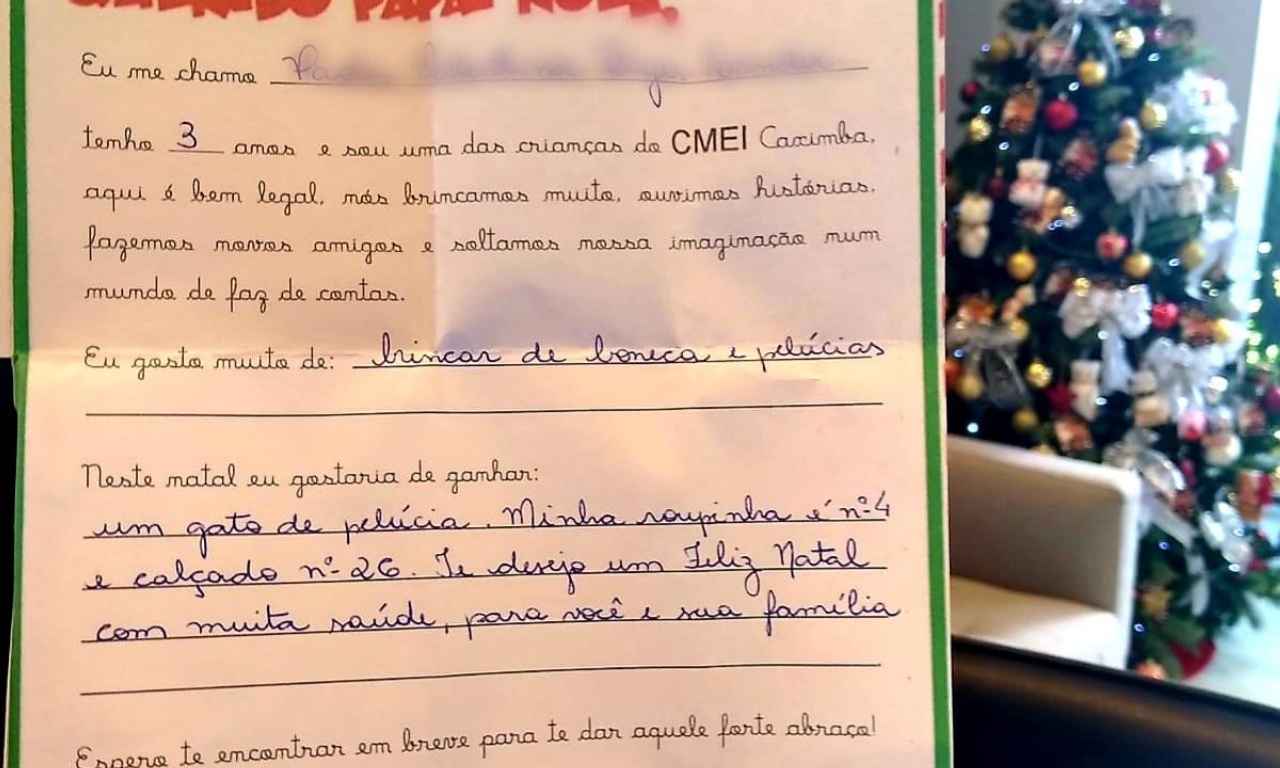 QUERIDO PAPAI NOEL,
Eu me chamo
tenho 3 anos e sou uma das crianças do CMEI Caximba,
aqui é bem legal, nós brincamos muito, ouvimos histórias,
fazemos novos amigos e soltamos nossa imaginação num
mundo de faz de contas.
Eu gosto muito de: brincar de boneca e pelúcias
Neste natal eu gostaria de ganhar:
um gato de pelúcia. Minha roupinha é nº 4
e calçado nº 26. Te desejo um Feliz Natal
com muita saúde, para você e sua família
Espero te encontrar em breve para te dar aquele forte abraço!